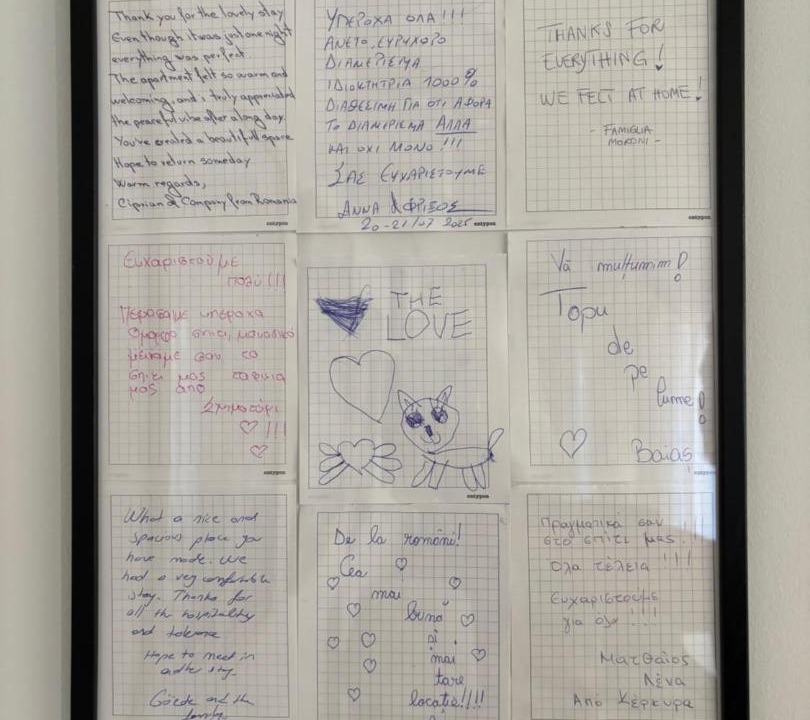 Thank you for the lovely stay
Even though it was just one night
everything was perfect.
The apartment felt so warm and
welcoming, and i truly appreciated
the peaceful vibe after a long day.
You've created a beautifull space
Hope to return someday
Warm regards,
Ciprian & Company from Romania
entypon
ΥΠΕΡΟΧΑ ΟΛΑ!!!
ΑΝΕΤΟ, ΕΥΡΥΧΩΡΟ
ΔΙΑΜΕΡΙΣΜΑ
ΙΔΙΟΚΤΗΤΡΙΑ 1000%
ΔΙΑΘΕΣΙΜΗ ΓΙΑ ΟΤΙ ΑΦΟΡΑ
ΤΟ ΔΙΑΜΕΡΙΣΜΑ ΑΛΛΑ
ΚΑΙ ΟΧΙ ΜΟΝΟ!!!
ΣΑΣ ΕΥΧΑΡΙΣΤΟΥΜΕ
ΑΝΝΑ
20-21/07 2025
entypon
THANKS FOR
EVERYTHING!
WE FELT AT HOME!
- FAMIGLIA
MORONI -
entypon
Ευχαριστούμε
πολύ!!!
Περάσαμε υπέροχα
Όμορφο σπίτι, μοναδικό
μείναμε σαν το
σπίτι μας
μας από
Σχηματάρι
!!!
entypon
THE
LOVE
entypon
Vă mulțumim!
Topu
de
pe
lume!
Baias
entypon
What a nice and
spacious place you
have made. We
had a very comfortable
stay. Thanks for
all the hospitality
and tolerance
Hope to meet in
stay.
and the
family
De la români!
Cea
mai
bună
și
mai
tare
locație!!!!
Πραγματικά σαν
στο σπίτι μας!!!
Όλα τέλεια!!!
Ευχαριστούμε
για όλα!!!!
Ματθαίος
Λένα
Από Κέρκυρα